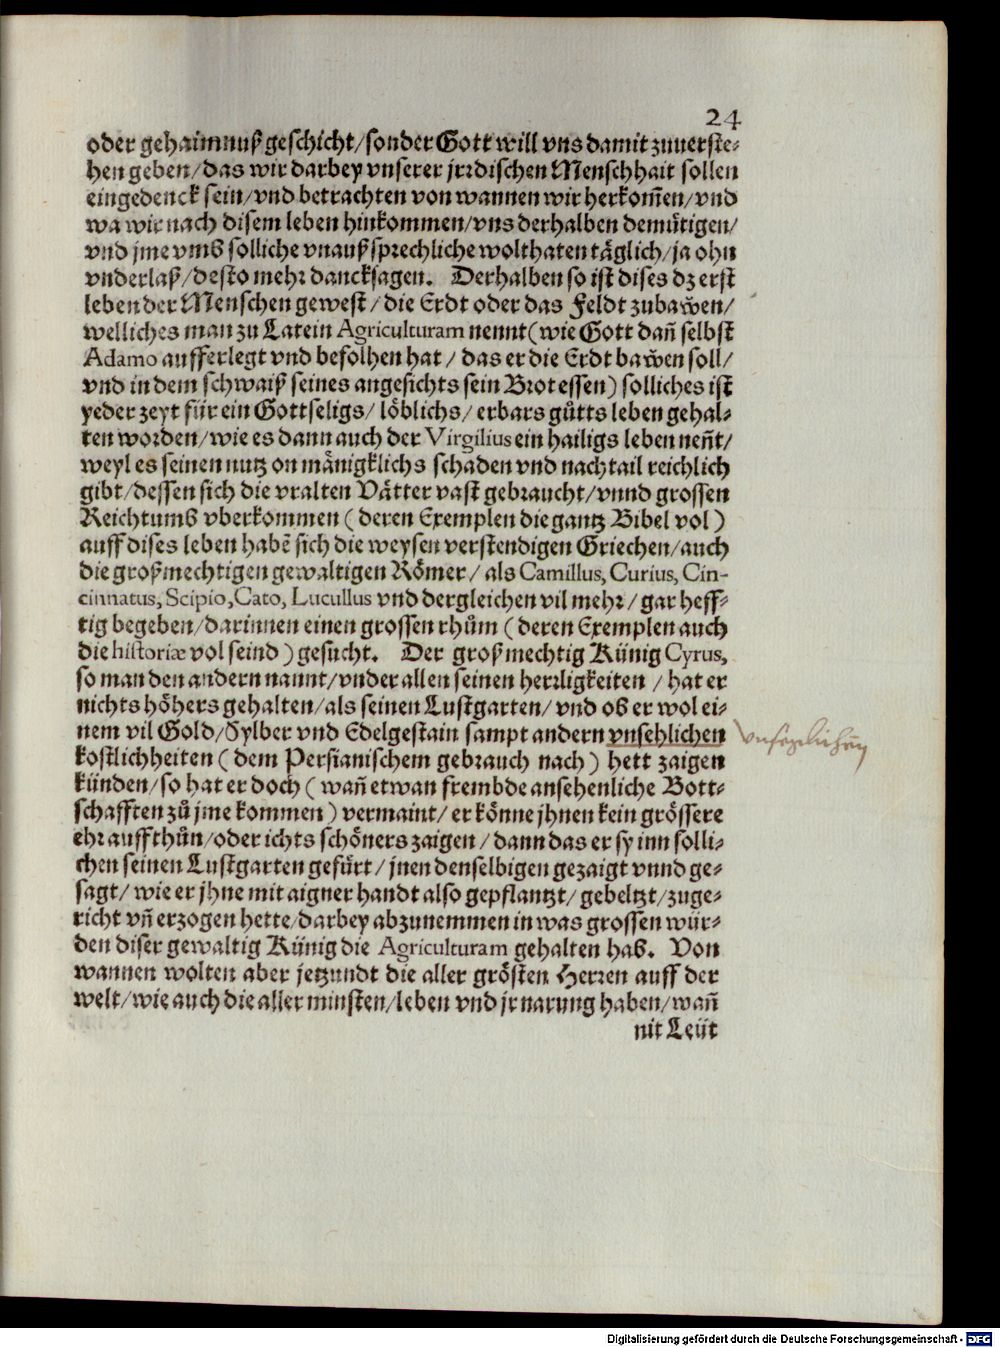 24
oder gehaimnuß geschicht/sonder Gott will vns damit zuuerste-
hen geben/das wir darbey vnserer jrrdischen Menschhait sollen
eingedenck sein/vnd betrachten von wannen wir herkom̃en/vnd
wa wir nach disem leben hinkommen/vns derhalben demuͤtigen/
vnd jme vmb solliche vnaußsprechliche wolthaten taͤglich/ja ohn
vnderlaß/desto mehr dancksagen. Derhalben so ist dises dz erst
leben der Menschen gewest/die Erdt oder das Feldt zubaw̃en/
welliches man zu Latein Agriculturam nennt(wie Gott dañ selbst
Adamo aufferlegt vnd befolhen hat/das er die Erdt baw̃en soll/
vnd in dem schwaiß seines angesichts sein Brot essen) solliches ist
yeder zeyt für ein Gottseligs/loͤblichs/erbars guͤtts leben gehal-
ten worden/wie es dann auch der Virgilius ein hailigs leben neñt/
weyl es seinen nutz on maͤnigklichs schaden vnd nachtail reichlich
gibt/dessen sich die vralten Vaͤtter vast gebraucht/vnnd grossen
Reichtumb vberkommen (deren Exemplen die gantz Bibel vol)
auff dises leben habẽ sich die weysen verstendigen Griechen/auch
die großmechtigen gewaltigen Roͤmer/als Camillus, Curius, Cin-
cinnatus, Scipio, Cato, Lucullus vnd dergleichen vil mehr/gar heff-
tig begeben/darinnen einen grossen rhům (deren Exemplen auch
die historiæ vol seind) gesucht. Der großmechtig Künig Cyrus,
so man den andern nannt/vnder allen seinen herrligkeiten/hat er
nichts hoͤhers gehalten/als seinen Lustgarten/vnd ob er wol ei-
nem vil Gold/Sylber vnd Edelgestain sampt andern vnsehlichen
kostlichheiten (dem Persianischem gebrauch nach) hett zaigen
künden/so hat er doch (wañ etwan frembde ansehenliche Bott-
schafften zů jme kommen) vermaint/er koͤnne jhnen kein groͤssere
ehr auffthůn/oder ichts schoͤners zaigen/dann das er sy inn solli-
chen seinen Lustgarten gefürt/jnen denselbigen gezaigt vnnd ge-
sagt/wie er jhne mit aigner handt also gepflantzt/gebeltzt/zuge-
richt vñ erzogen hette/darbey abzunemmen in was grossen wür-
den diser gewaltig Künig die Agriculturam gehalten hab. Von
wannen wolten aber jetzundt die aller groͤsten Herren auff der
welt/wie auch die aller minsten/leben vnd jr narung haben/wañ
nit Leüt
Digitalisierung gefördert durch die Deutsche Forschungsgemeinschaft - DFG